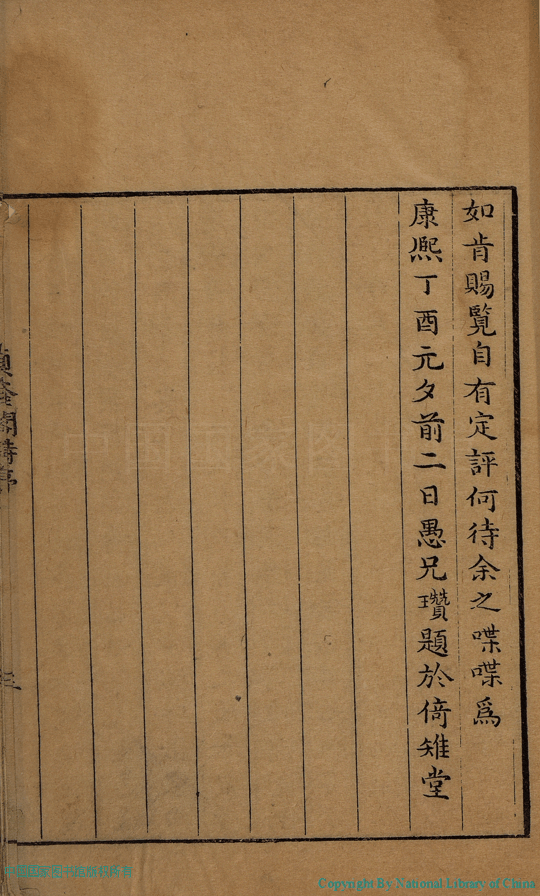 如肯賜覧自有定評何待余之喋喋爲
康熈丁酉元夕前二日愚兄瓚題於倚雉堂
閣詩草
Copyright By National Library of China